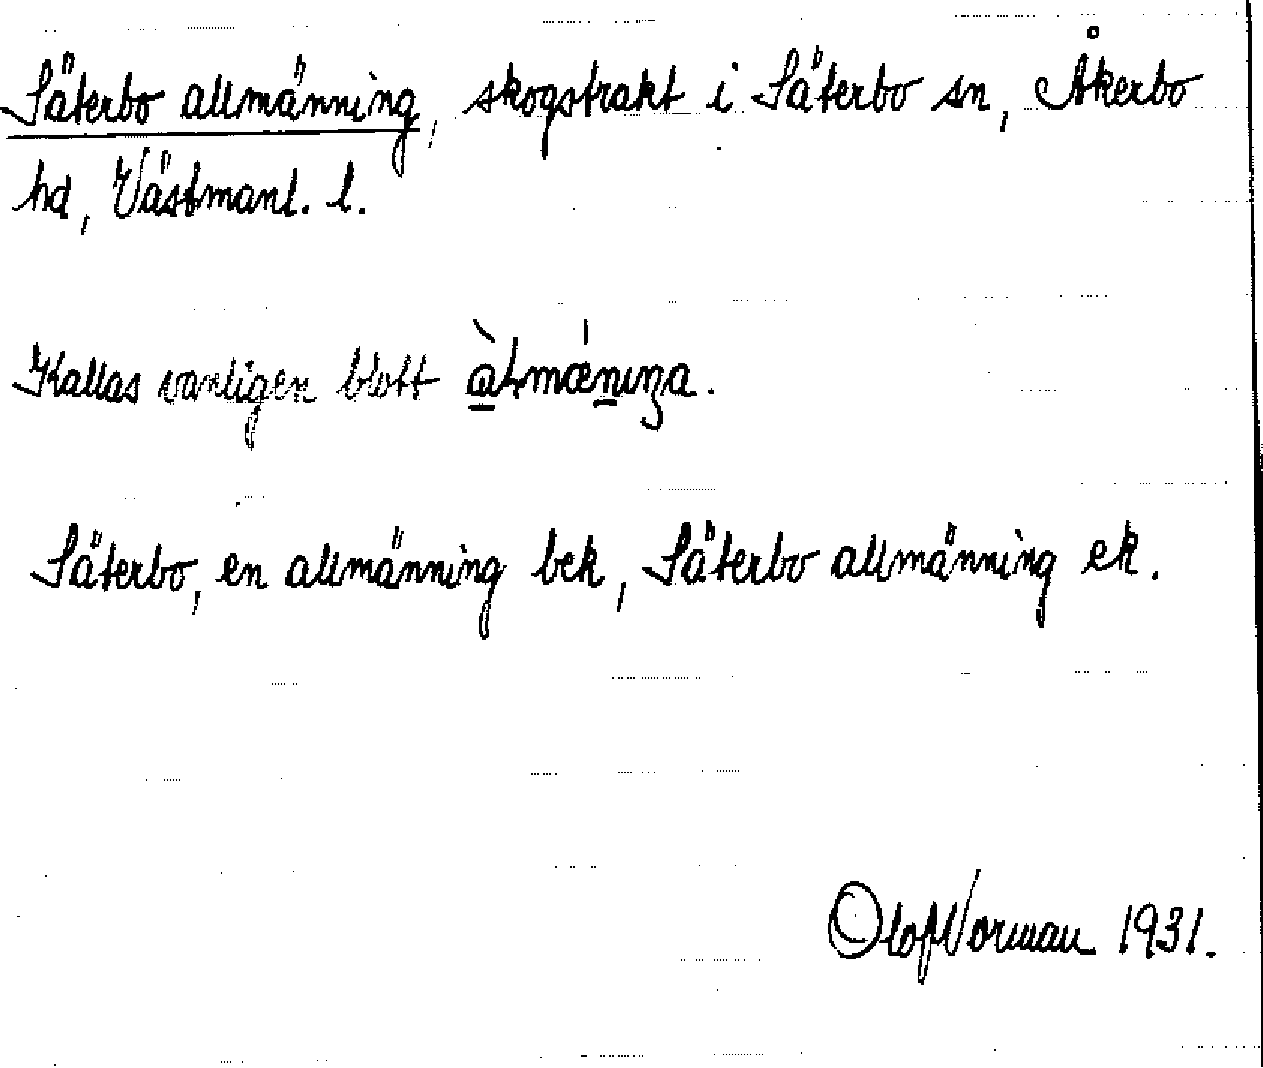 Säterbo allmänning, skogstrakt i Säterbo sn, Åkerbo
hd, Västmanl. l.
Kallas vanligen blott
Säterbo, en allmänning bek, Säterbo allmänning ek.
Olof Norman 1931.